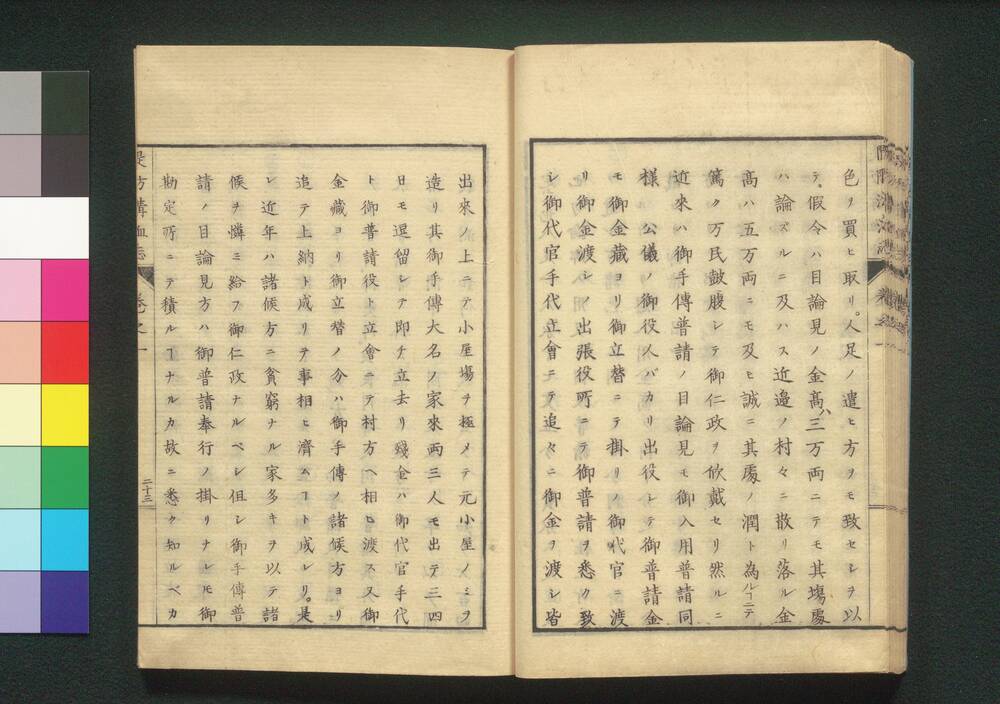 色リ買ヒ取リ。人足ノ遣ヒ方ヲモ致セシヲ以
テ。假令ハ目論見ノ金高ハ三万両ニテモ其場處
ハ論ズルニ及ハス近邉ノ村々ニ散リ落ル金
高ハ五万両ニモ及ヒ誠ニ其處ノ潤ト為ルヿニテ
篤ク万民皷腹シテ御仁政ヲ欣戴セリ然ルニ
近來ハ御手傳普請ノ目論見モ御入用普請同
様 公儀ノ御役人バカリ出役シテ御普請金
モ御金藏ヨリ御立替ニテ掛リノ御代官ニ渡
リ御金渡シノ出張役所ニテ御普請ヲ悉ク致
シ御代官手代立會ニテ追々ニ御金ヲ渡シ皆
出來ノ上ニテ小屋場ヲ極メテ元小屋ノミヲ
造リ其御手傳大名ノ家來両三人モ出テ三四
日モ逗留シテ即チ立去リ殘金ハ御代官手代
ト御普請役ト立會ニテ村方ヘ相ヒ渡ス又御
金藏ヨリ御立替ノ分ハ御手傳ノ諸候方ヨリ
追テ上納ト成リテ事相ヒ濟ムヿト成レリ。是
レ近年ハ諸候方ニ貧窮ナル家多キヲ以テ諸
候ヲ憐ミ給フ御仁政ナルベシ但シ御手傳普
請ノ目論見方ハ御普請奉行ノ掛リナレモ御
勘定所ニテ積ルヿナルカ故ニ悉ク知ルベカ
卷之一
二十三